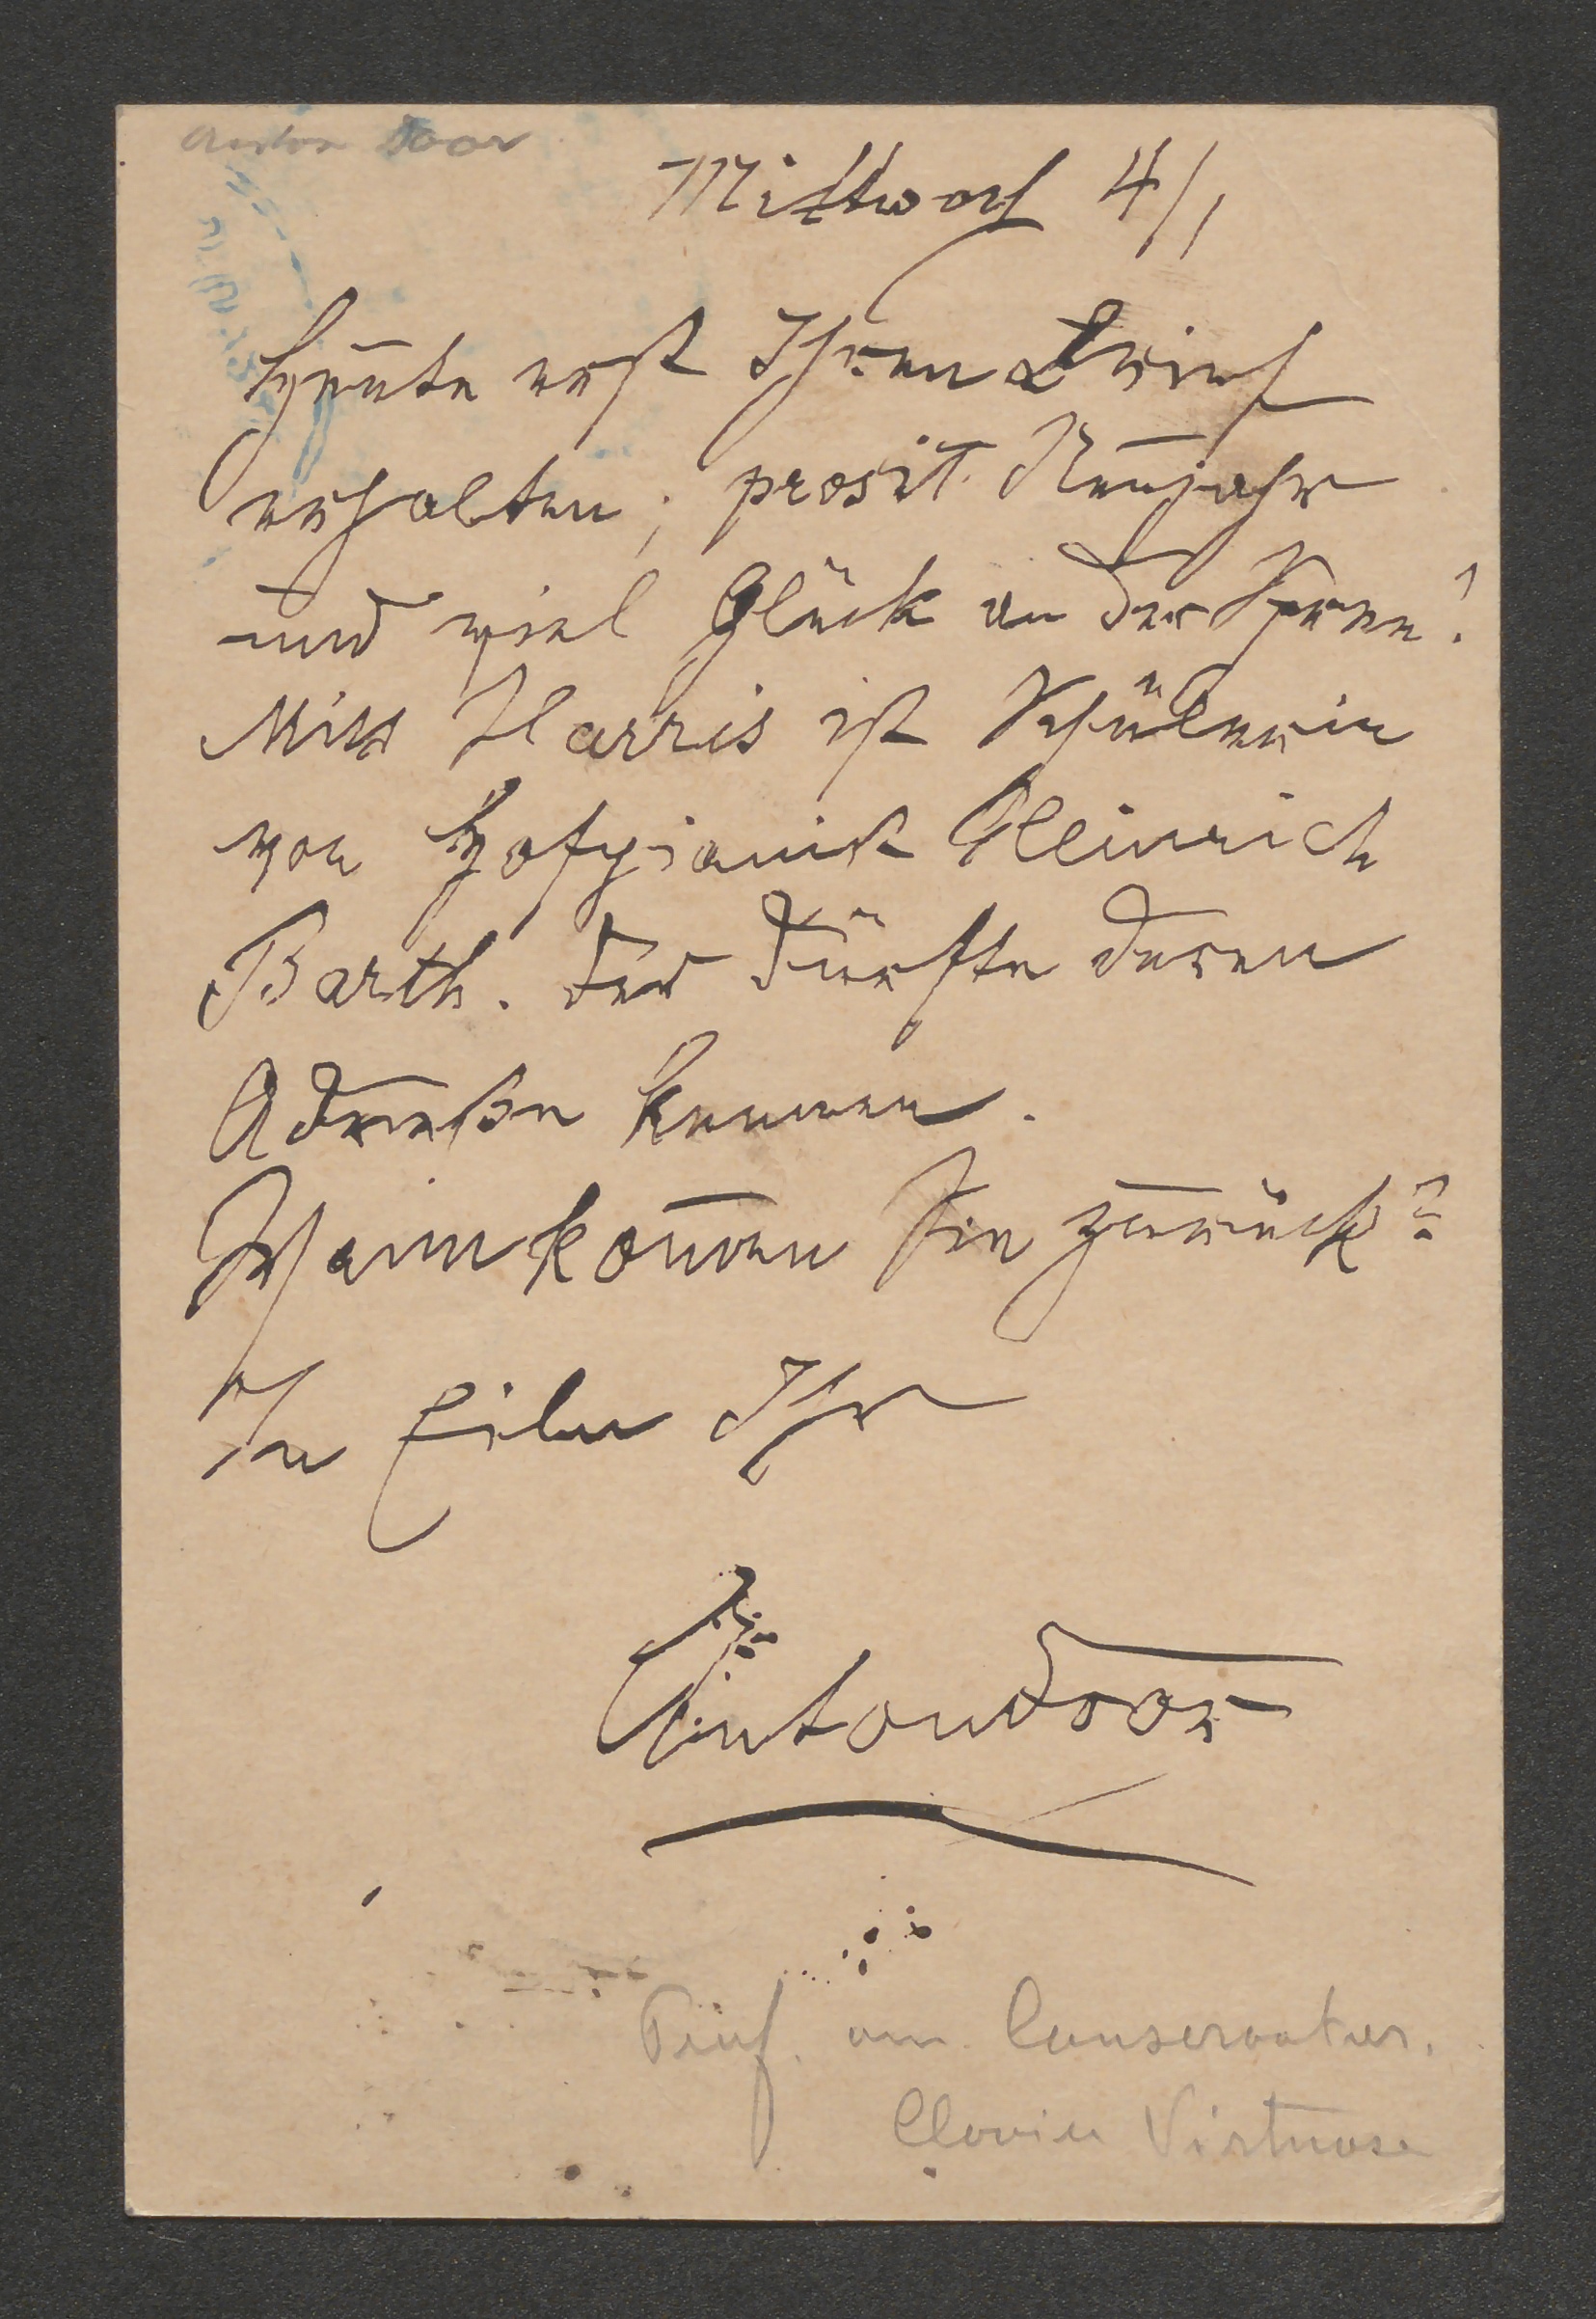 Anton Door
Mittwoch 4/1
Heute erst Ihren Brief
erhalten; prosit Neujahr
und viel Glück an der Spree!
Miss Harris ist Schülerin
von Hofpianist Heinrich
Barth. Der dürfte deren
Adresse kennen.
Wann kom̄en Sie zurück?
In Eile Ihr
Anton Door
Prof. am Conservator.
Clavier Virtuose